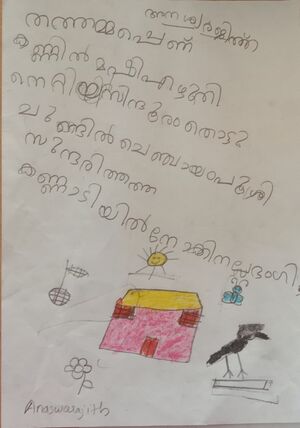 അനശ്വരജിത്ത്
തത്തമ്മപ്പെണ്ണ്
കണ്ണിൽ മഷിഎഴുതി
നെറ്റിയിസിന്ദൂരം തൊട്ടു
ചുണ്ടിൽ ചെഞ്ചായംപൂശി
സുന്ദരിതത്ത
കണ്ണാടിയിൽ നോക്കിന
Anaswarajith